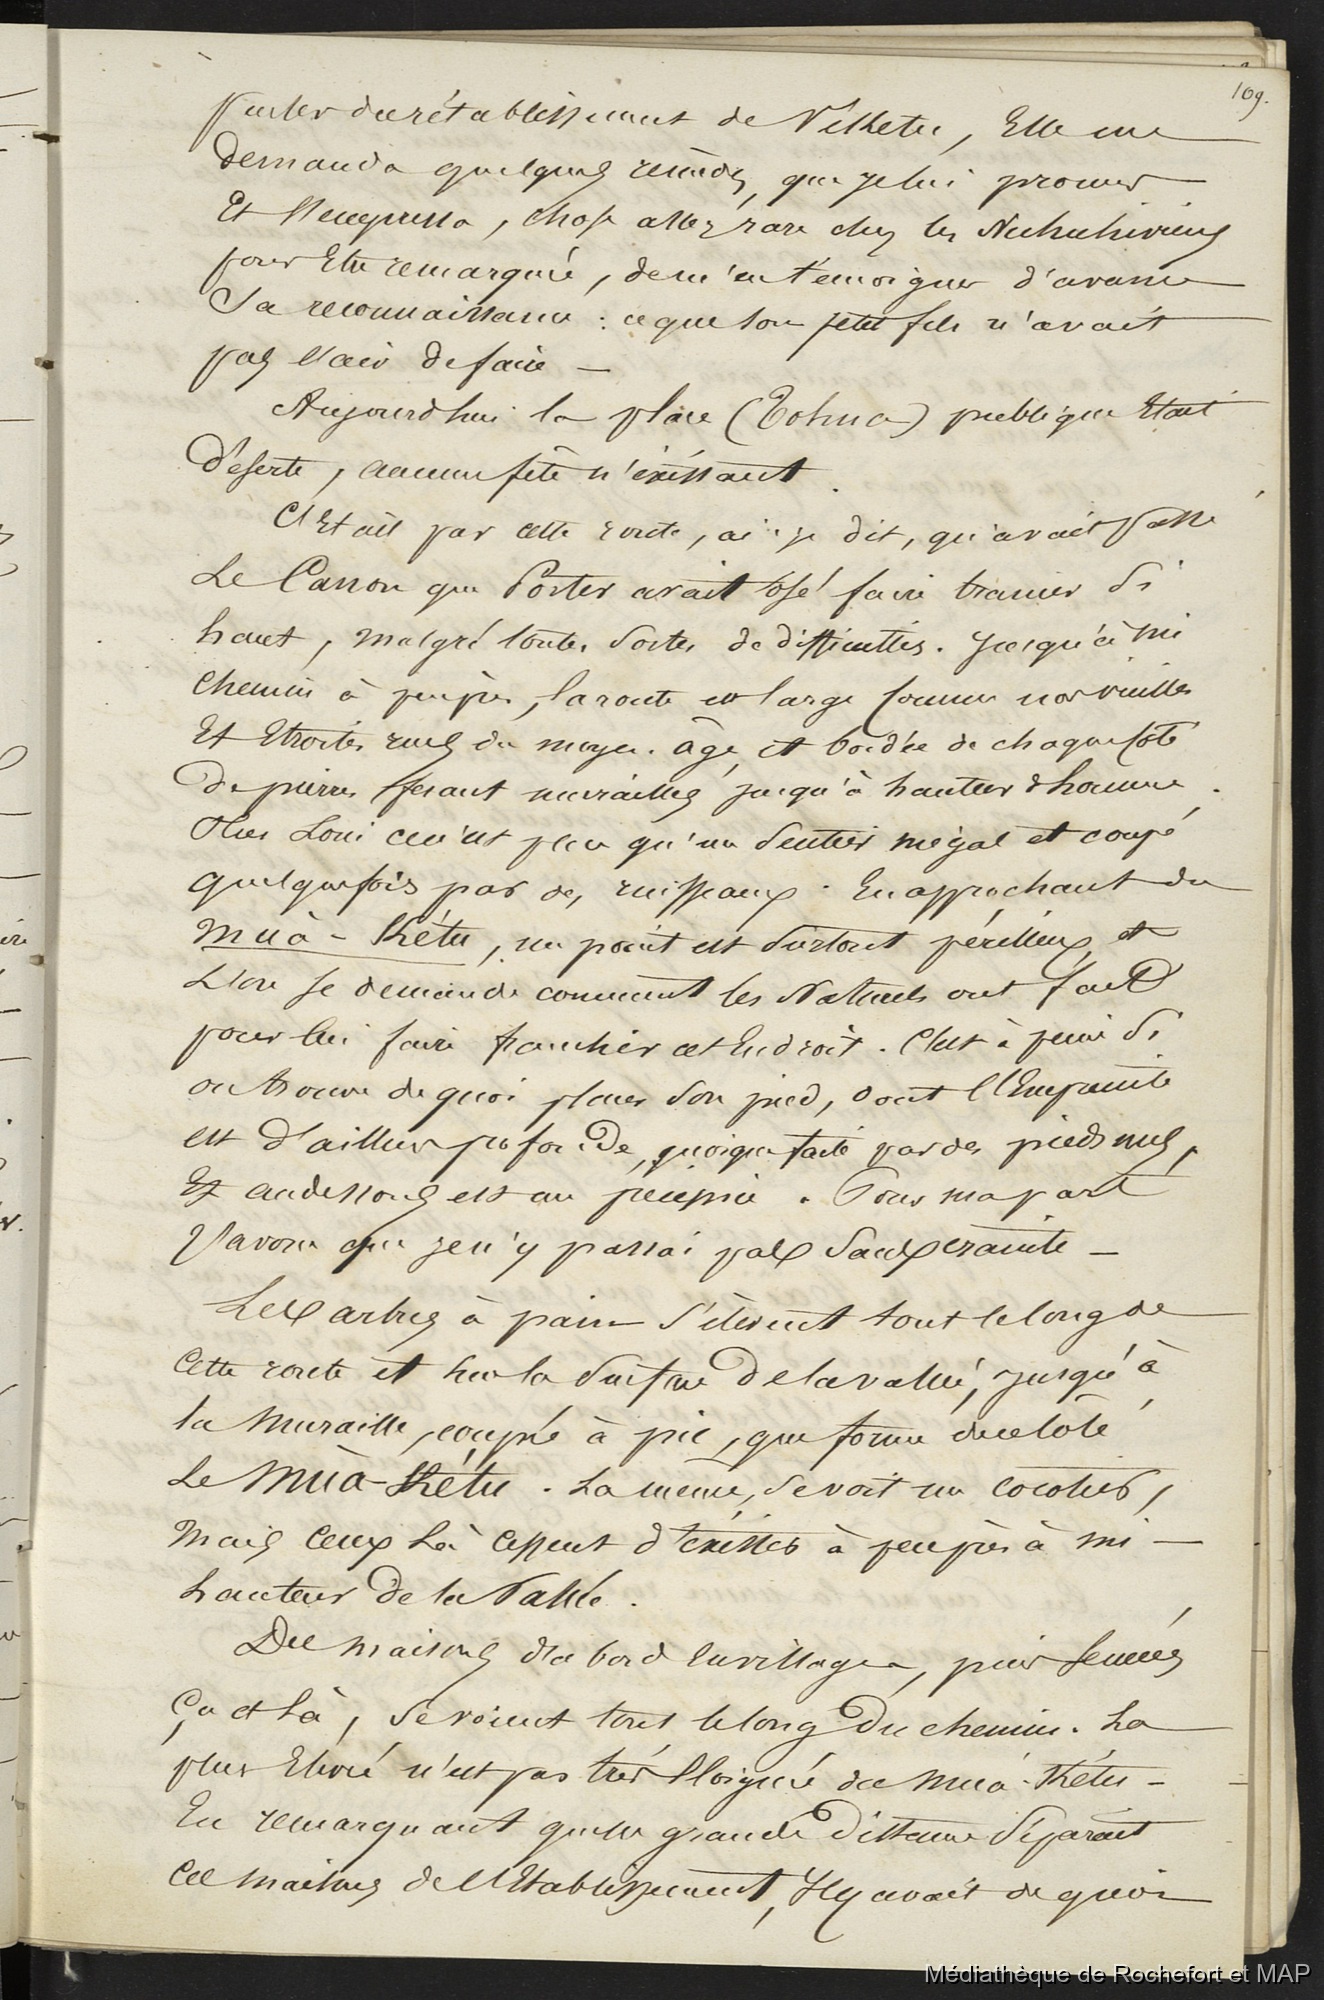 109.
parler du rétablissement de Vékétu, Elle me
demanda quelques remèdes, que je lui promis
Et s'empressa, chose assez rare chez les Nukuhiviens
pour Etre remarquée, de m'en témoigner d'avance
Sa reconnaissance : ce que son petit fils n'avait
pas l'air de faire —
Aujourdhui la place (Tohua) publique Etait
déserte, aucune fête n'éxistant.
C'Etait par cette route, ai-je dit, qu'avait passé
Le Canon que Porter avait osé faire trainer Si
haut, malgré toutes Sortes de difficultés. Jusqu'à mi
chemin à peu près, la route est large comme nos vieilles
Et Etroites rues du moyen-âge, et bordée de chaque côté
De pierres fesant murailles jusqu'à hauteur d'homme.
Plus Loin ce n'est plus qu'un Sentier inégal et coupé
quelquefois par des ruisseaux. En approchant du
Muà-Kétu, un point est Surtout périlleux et
L'on se demande comment les Naturels ont fait
pour lui faire franchir cet Endroit. C'est à peine Si
on trouve de quoi placer Son pied, dont l'Empreinte
est d'ailleurs profonde, quoique faite par des pieds nus,
Et au dessous est un précipice. Pour ma part
J'avoue que je n'y passai pas Sans crainte —
Les arbres à pain S'élèvent tout le long de
Cette route et sur la Surface De la vallée, jusqu'à
la Muraille, coupée à pic, que forme de ce côté
Le Muà-Kétu. Là même, Se voit un cocotier,
Mais Ceux Là Cessent d'éxister à peu près à mi —
hauteur De la Vallée.
Des maisons d'abord En village, puis Semées
Ça et Là, Se voient tout le long Du chemin. La
plus Elevée n'est pas très Eloignée du Muà-Kétu —
En remarquant quelle grande Distance Séparait
Ces maisons de l'Etablissement, Il y avait de quoi
Médiathèque de Rochefort et MAP